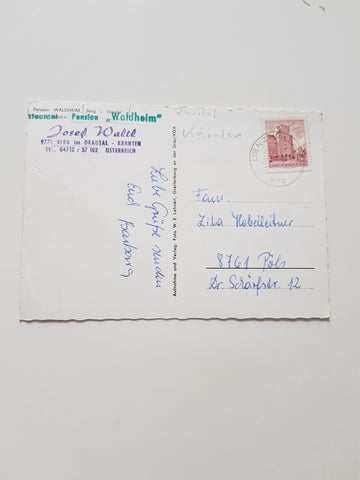 Pension WALDHEIM, Berg i. Drautal
Restaurant - Pension „Waldheim"
Josef Waltl
9771 BERG im DRAUTAL - KÄRNTEN
TEL. 04712 / 37 102 ÖSTERREICH
Drautal
Kärnten
Liebe Grüße senden
Euch
Aufnahme und Verlag: Foto W. E. Lehnert, Greifenburg an der Drau/VGA
LIENZ
Fam.
Zita Hobelleitner
8761 Pöls
Dr. Schärfstr. 12